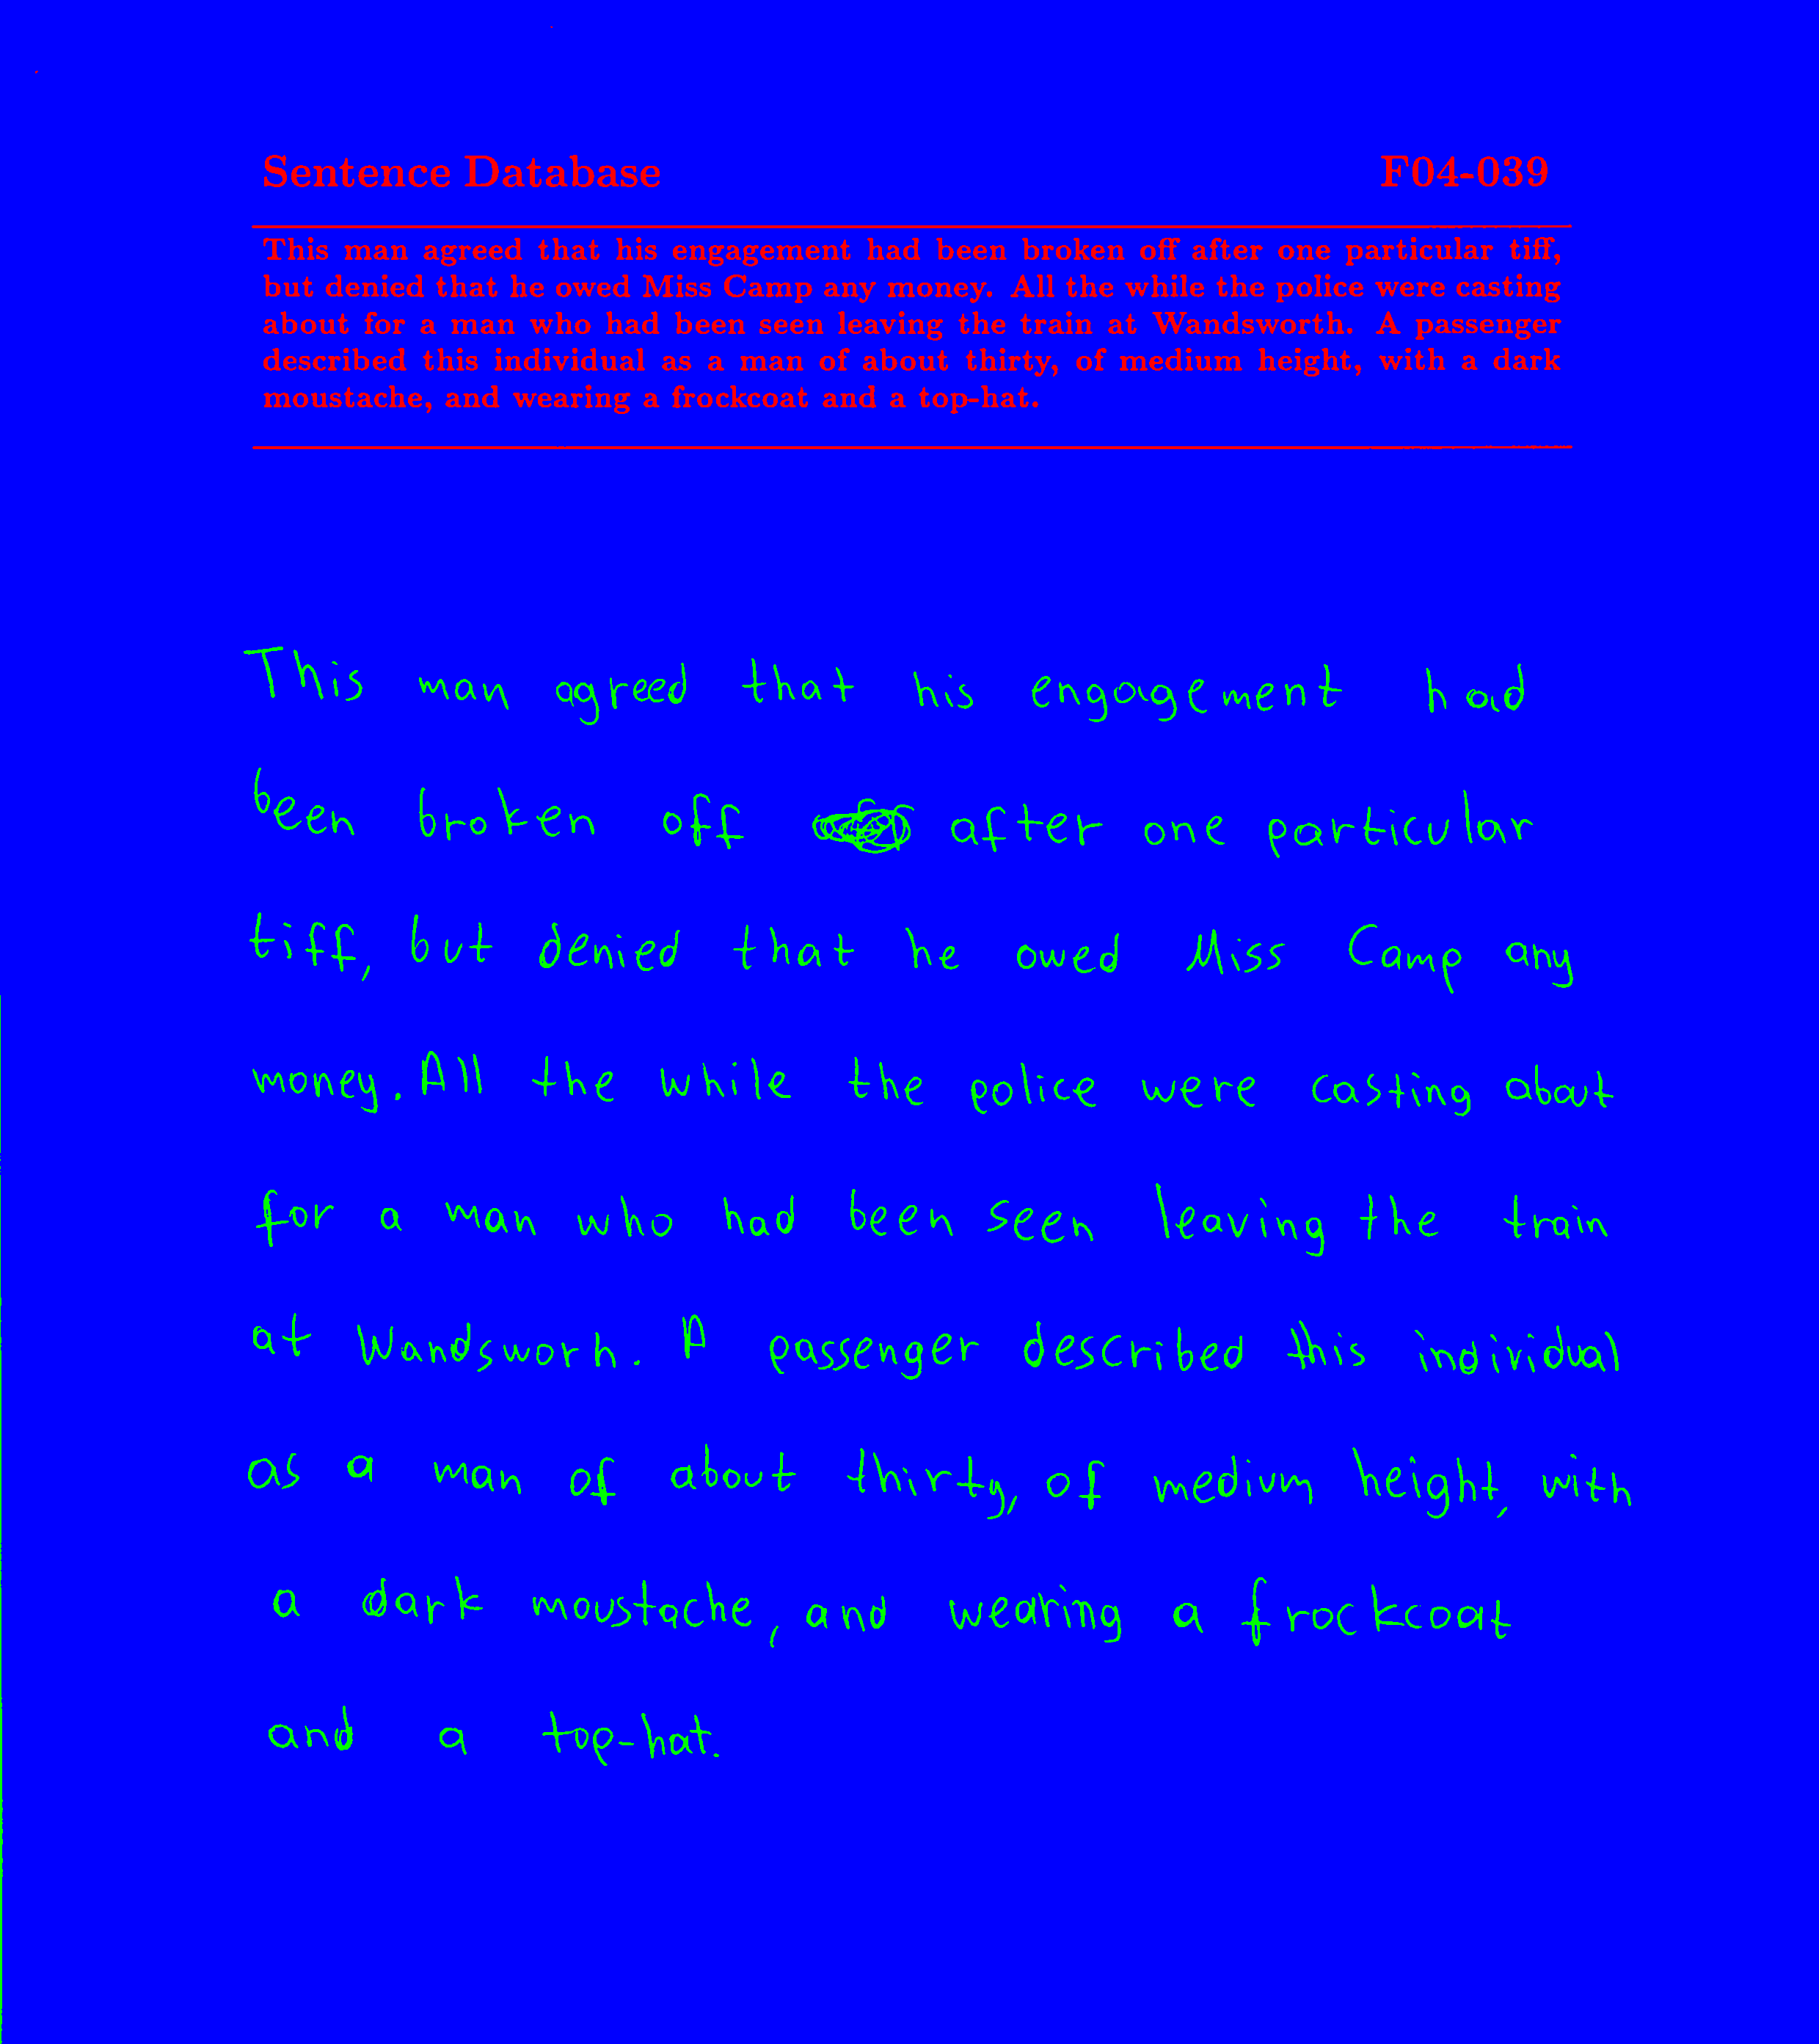 Sentence Database F04-039
This man agreed that his engagement had been broken off after one particular tiff,
but denied that he owed Miss Camp any money. All the while the police were casting
about for a man who had been seen leaving the train at Wandsworth. A passenger
described this individual as a man of about thirty, of medium height, with a dark
moustache, and wearing a frockcoat and a top-hat.
This man agreed that his engagement had
been broken off after one particular
tiff, but denied that he owed Miss Camp any
money. All the while the police were casting about
for a man who had been seen leaving the train
at Wandsworh. A passenger described this individual
as a man of about thirty, of medium height, with
a dark moustache, and wearing a frockcoat
and a top-hat.